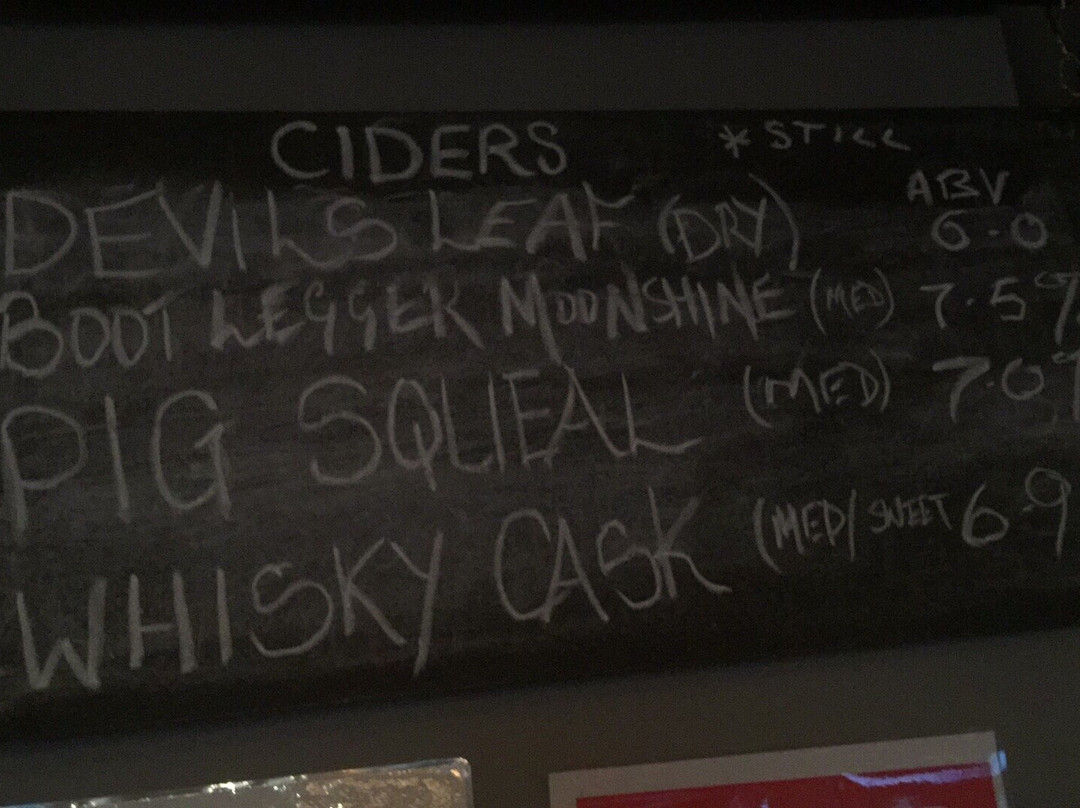 CIDERS * STILL
ABV
DEVILS LEAF (DRY) 6.0
BOOT LEGGER MOONSHINE (MED) 7.5%
PIG SQUEAL (MED) 7.0%
WHISKY CASK (MED/SWEET 6.9